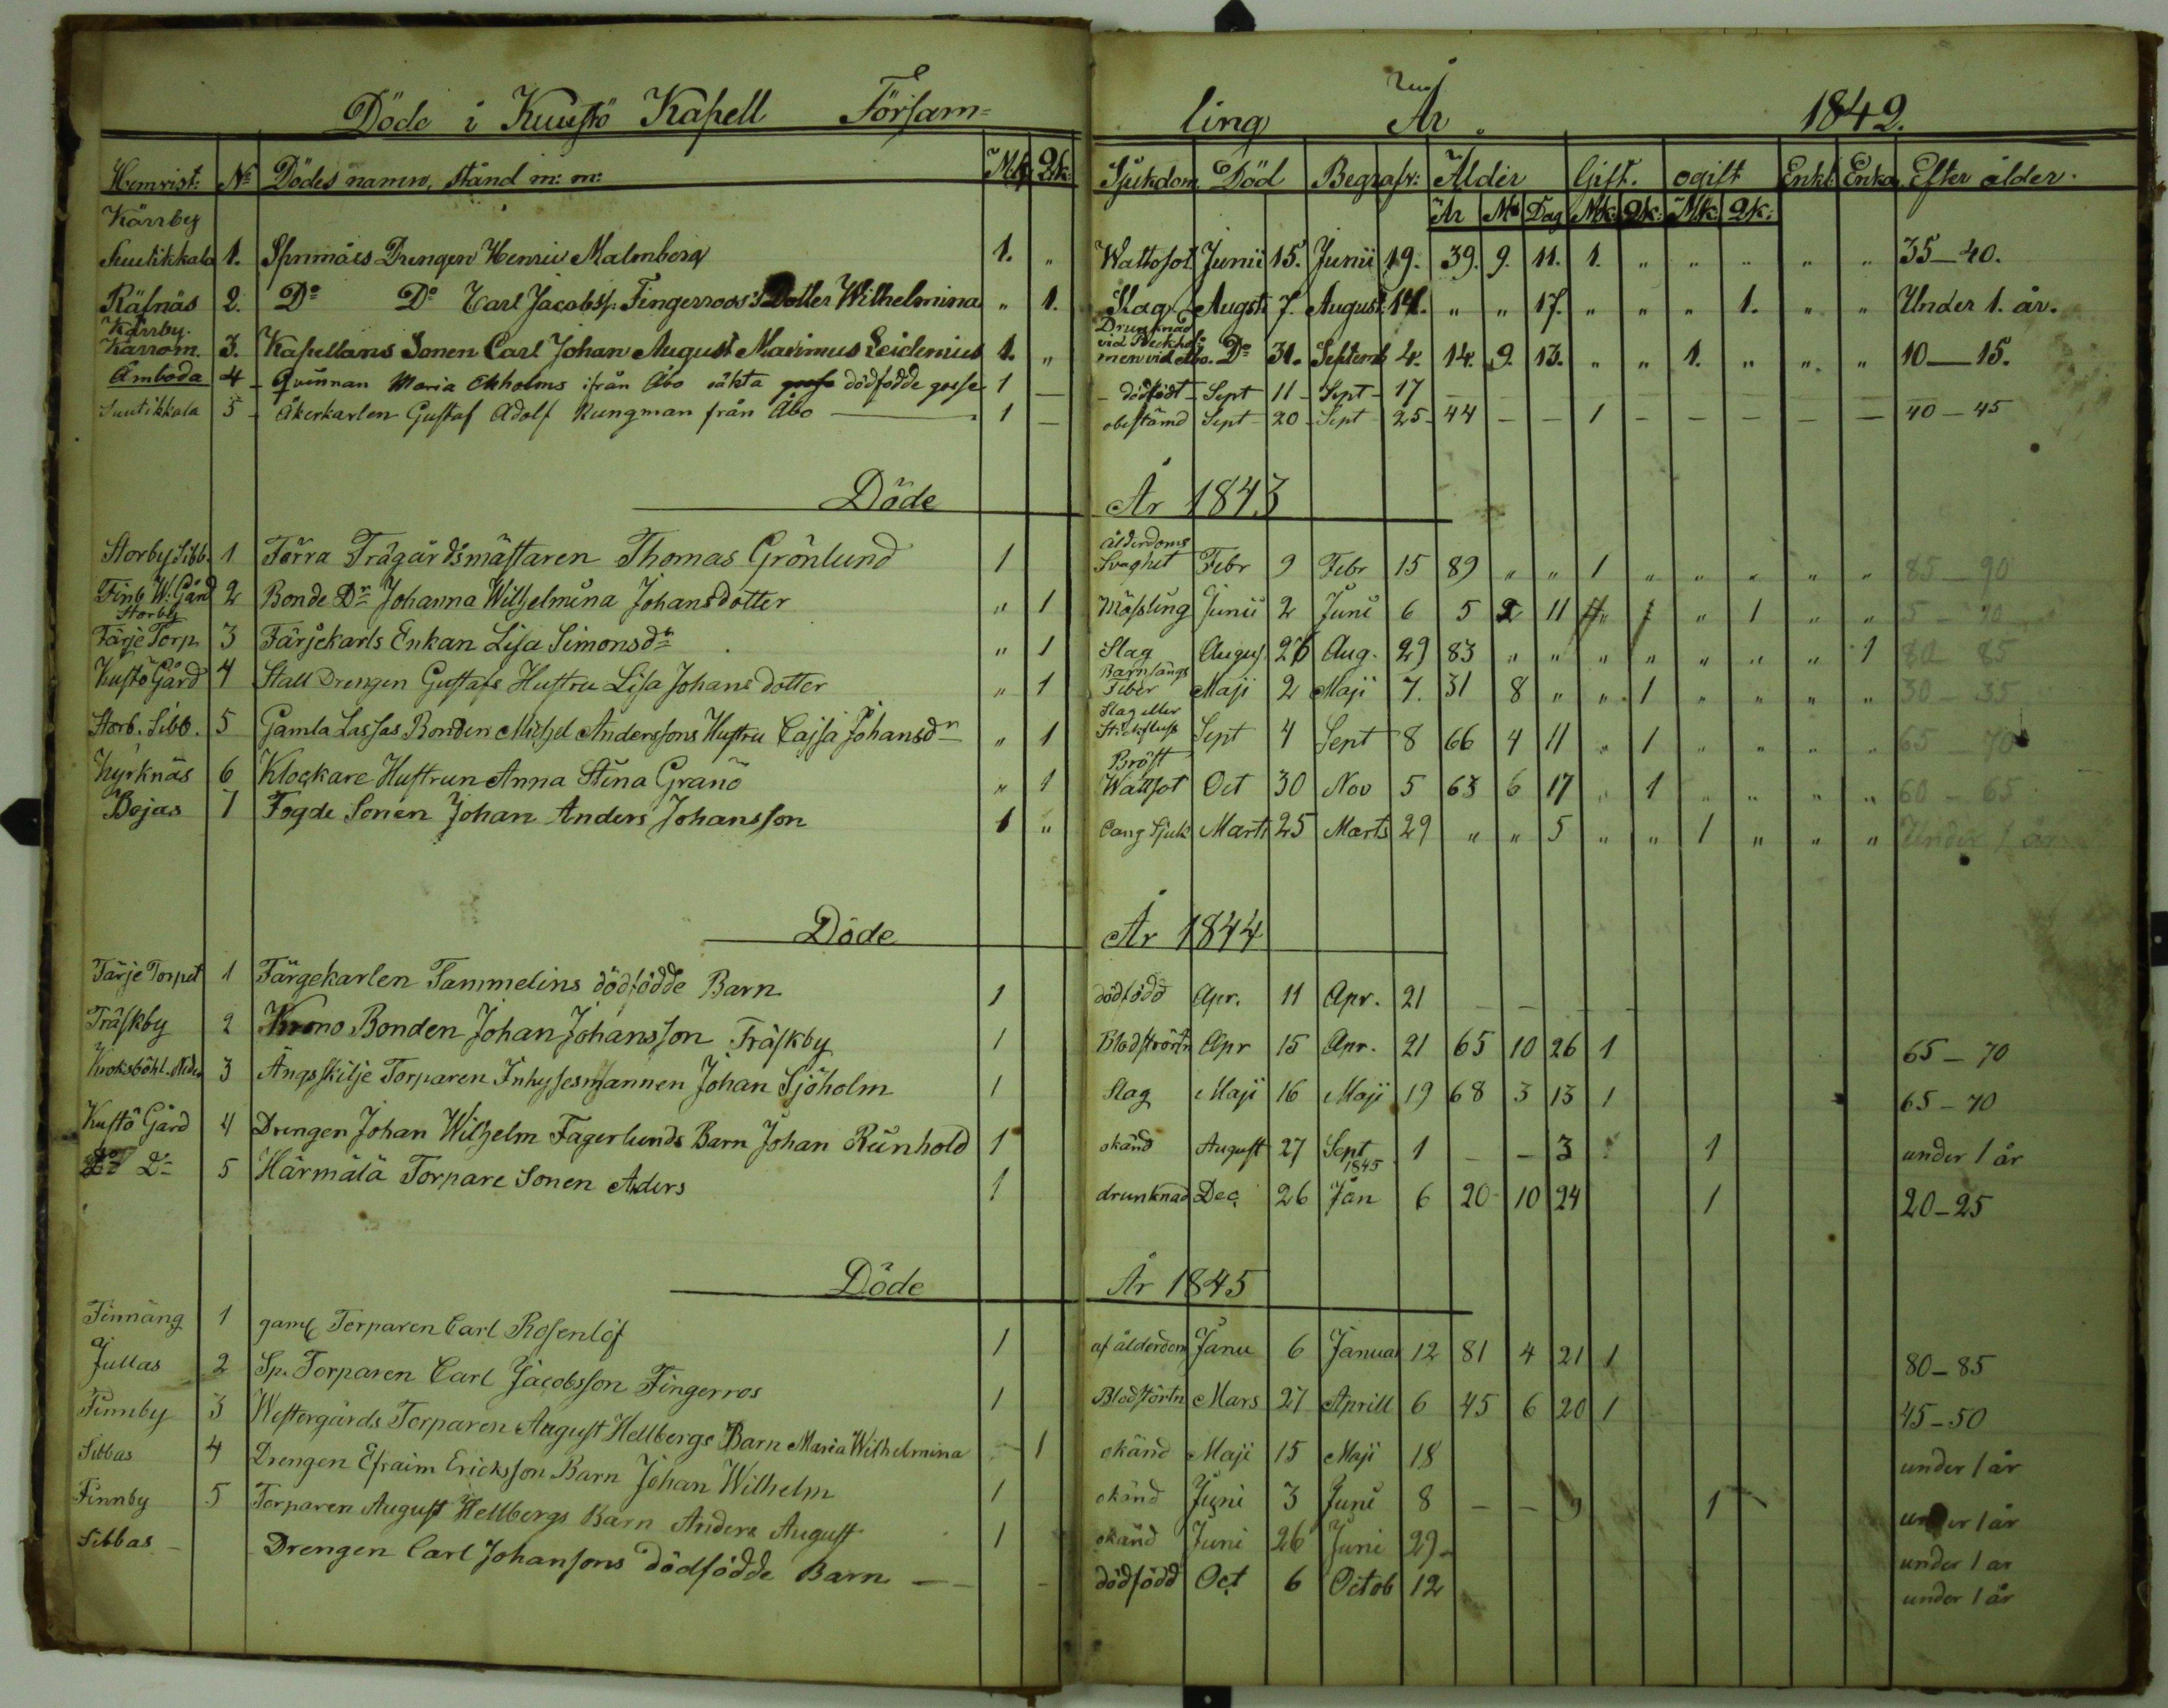 Döde i Kuustö Kapell Församling År 1842.
Hemvist: No Dödes namn, stånd m: m: Mk Qk: Sjukdom Död Begrafn: Ålder Gift. ogift Enkl. Enka Efter ålder.
År Md Dag Mk: Qk: Mk: Qk:
Kärrby
Suutikkala 1. Spnmäes Drengen Henric Malmberg 1. " Wattusot Junii 15. Junii 19. 39. 9. 11. 1. " " " " " 35_40.
Räfnäs 2. Do Do Carl Jacobsp. Fingerroos's Dotter Wilhelmina " 1. Slag Augst. 7. August. 14. " " 17. " " " 1. " " Under 1. år.
Kärrby.
Kärrom. 3. Kapellans Sonen Carl Johan August Maximus Leidenius 1. " Drunknad vid men vid Åbo. Do 31. Septemb 4. 14. 9. 13. " " 1. " " " 10_15.
Ämboda 4 - Qvinnan Maria Ekholms ifrån Åbo oäkta dödfödde gosse 1 — - dödfödt - Sept 11 - Sept - 17
Suutikkala 5 - Åkerkarlen Gustaf Adolf Kungman från Åbo — 1 — obestämd Sept - 20 - Sept 25 - 44 — — 1 — — — — — 40 — 45
Döde År 1843
Storby Sibb. 1 Förra Trägårdsmästaren Thomas Grönlund 1 Ålderdoms Svaghet Febr 9 Febr 15 89 " " 1 " " " " " 85 90
Finb W. Gård 2 Bonde Dr Johanna Wilhelmina Johansdotter " 1 Mässling Junii 2 Juni 6 5 2 11 " 1 " 1 " "
Storby
Färje Torp 3 Färjekarls Enkan Lisa Simonsdr " 1 Slag August. 26 Aug. 29 83 " " " " " " " 1 80 85
Kustö Gård 4 Stall Drengen Gustafs Hustru Lisa Johans dotter " 1 Barnsängs Feber Maji 2 Maji 7. 31 8 " " 1 " " " " 30 - 35
Storb. Sibb. 5 Gamla Lassas Bonden Michel Anderssons Hustru Cajsa Johansdr " 1 Slag eller Stickfluss Sept 4 Sept 8 66 4 11 " 1 " " " " 65 — 70
Kyrknäs 6 Klockare Hustrun Anna Stina Granö " 1 Bröst Wattsot Oct 30 Nov 5 63 6 17 " 1 " " " " 60 - 65
Bojas 7 Fogde Sonen Johan Anders Johansson 1 " Lang Sjuk Marts 25 Marts 29 " " 5 " " 1 " " " Under 1 år
Döde År 1844
Färje Torpet 1 Färgekarlen Tammelins dödfödde Barn 1 dödfödd Apr. 11 Apr. 21 — —
Träskby 2 Krono Bonden Johan Johansson Träskby 1 Blodstörtn Apr 15 Apr. 21 65 10 26 1 65 - 70
3 Ängsskilje Torparen Inhysesmannen Johan Sjöholm 1 Slag Maji 16 Maji 19 68 3 13 1 65 - 70
Kustö Gård 4 Drengen Johan Wilhelm Fagerlunds Barn Johan Reinhold 1 okänd August 27 Sept 1 — — 3 1 under 1 år
Do Do 5 Härmälä Torpare Sonen Anders 1 drunknad Dec. 26 1845 Jan 6 20 10 24 1 20-25
Döde År 1845
Finnäng 1 gaml. Torparen Carl Rosenlöf 1 af ålderdom Janu 6 Januar 12 81 4 21 1 80-85
Jullas 2 Sp. Torparen Carl Jacobsson Fingerros 1 Blodstörtn Mars 27 Aprill 6 45 6 20 1 45-50
Finnby 3 Westergårds Torparen August Hellbergs Barn Maria Wilhelmina - 1 okänd Maji 15 Maji 18 under 1 år
Sibbas 4 Drengen Efraim Ericksson Barn Johan Wilhelm 1 okänd Juni 3 Juni 8 — — 9 1 under 1 år
Finnby 5 Torparen August Hellbergs Barn Anders August 1 okänd Juni 26 Juni 29 - under 1 år
Sibbas - Drengen Carl Johansons dödfödde Barn — dödfödd Oct 6 Octob 12 under 1 år